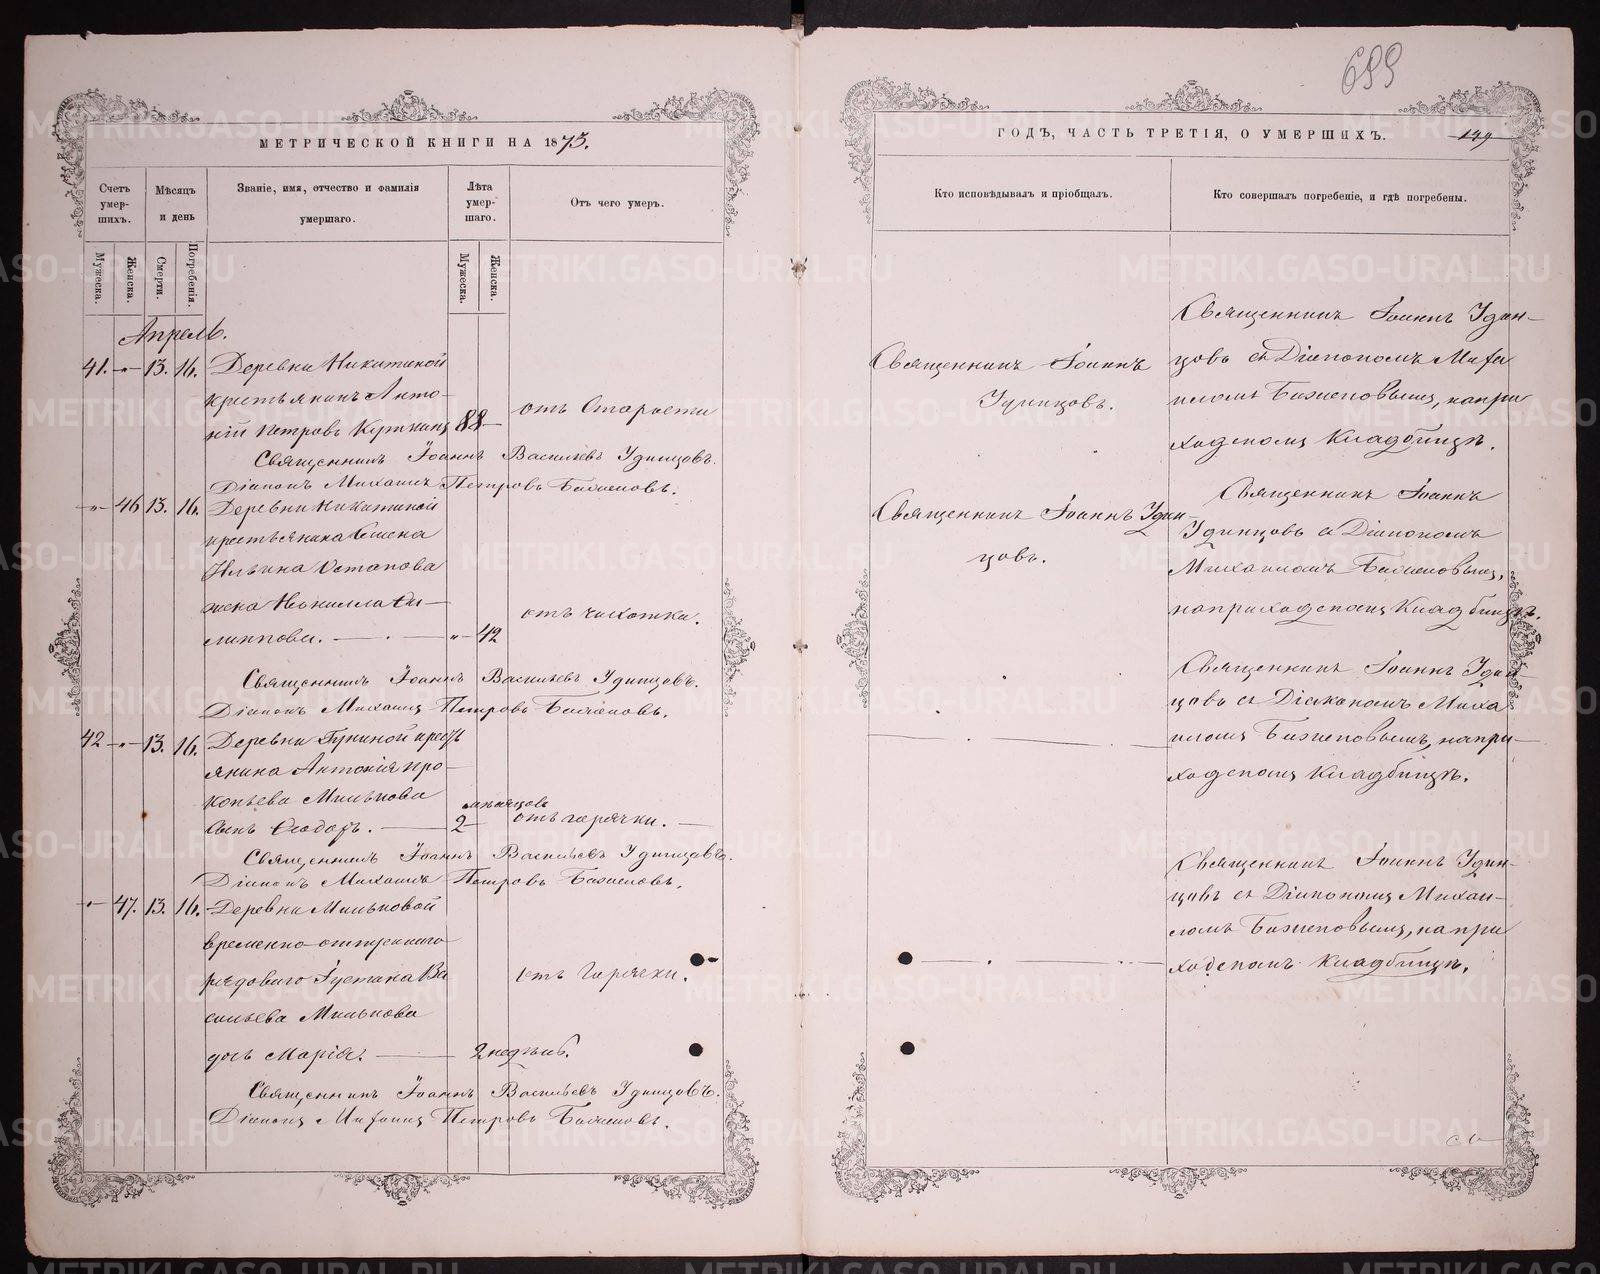 699
МЕТРИЧЕСКОЙ КНИГИ НА 1873.
Счетъ умер-шихъ.
Мѣсяцъ и день
Званіе, имя, отчество и фамилія умершаго.
Лѣта умер-шаго.
Отъ чего умеръ.
Мужеска.
Женска.
Смерти.
Погребенія.
Мужеска.
Женска.
Апрель.
41. -"- 13. 16. Деревни Никитиной
крестьянинъ Анто-
ній Петровъ 88
отъ Старости
Священникъ Іоаннъ Васильевъ Удинцовъ.
Діаконъ Михаилъ Петровъ Баженовъ.
-"- 46 13. 16. Деревни Никитиной
крестьянина Семена
Ильина Остапова
жена Неонилла Фи-
липпова. - " - 42
отъ чахотки.
Священникъ Іоаннъ Васильевъ Удинцовъ.
Діаконъ Михаилъ Петровъ Баженовъ.
42 -"- 13. 16. Деревни крест
янина Антонія Про-
копьева Милькова
сынъ Ѳеодоръ. 2 мѣсяцовъ
отъ горячки.
Священникъ Іоаннъ Васильевъ Удинцовъ.
Діаконъ Михаилъ Петровъ Баженовъ.
-"- 47. 13. 16. Деревни Мильковой
временно-отпускнаго
рядоваго Густана Ва
сильева Милькова
дочь Марія. 2 недѣль.
отъ Горячки.
Священникъ Іоаннъ Васильевъ Удинцовъ.
Діаконъ Михаилъ Петровъ Баженовъ.
ГОДЪ, ЧАСТЬ ТРЕТІЯ, О УМЕРШИХЪ.
199
Кто исповѣдывалъ и пріобщалъ.
Кто совершалъ погребеніе, и гдѣ погребены.
Священникъ Іоаннъ
Удинцовъ.
Священникъ Іоаннъ Удин-
цовъ съ Діакономъ Миха
иломъ Баженовымъ, на при
ходскомъ Кладбищѣ.
Священникъ Іоаннъ Удин-
цовъ.
Священникъ Іоаннъ
Удинцовъ съ Діакономъ
Михаиломъ Баженовымъ,
на приходскомъ Кладбищѣ.
Священникъ Іоаннъ Удин-
цовъ съ Діакономъ Миха
иломъ Баженовымъ, на при-
ходскомъ Кладбищѣ.
Священникъ Іоаннъ Удин-
цовъ съ Діакономъ Михаи-
ломъ Баженовымъ, на при
ходскомъ Кладбищѣ.
METRIKI.GASO-URAL.RU